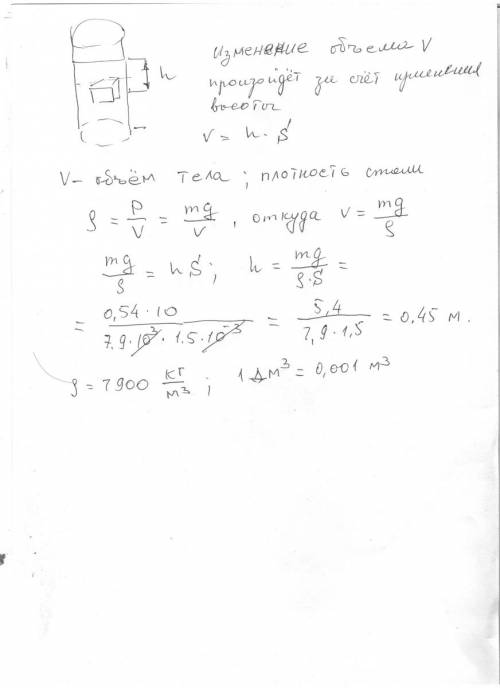 h
изменение объема V
произойдёт за счёт изменения
высоты
V = h · S
V – объём тела ; плотность стали
ρ = P/V = mg/V , откуда V = mg/ρ
mg/ρ = hS ; h = mg/(ρ·S) =
= (0,54 · 10)/(7,9 · 10³ · 1,5 · 10⁻³) = 5,4/(7,9 · 1,5) = 0,45 м.
ρ = 7900 кг/м³ ; 1 дм³ = 0,001 м³